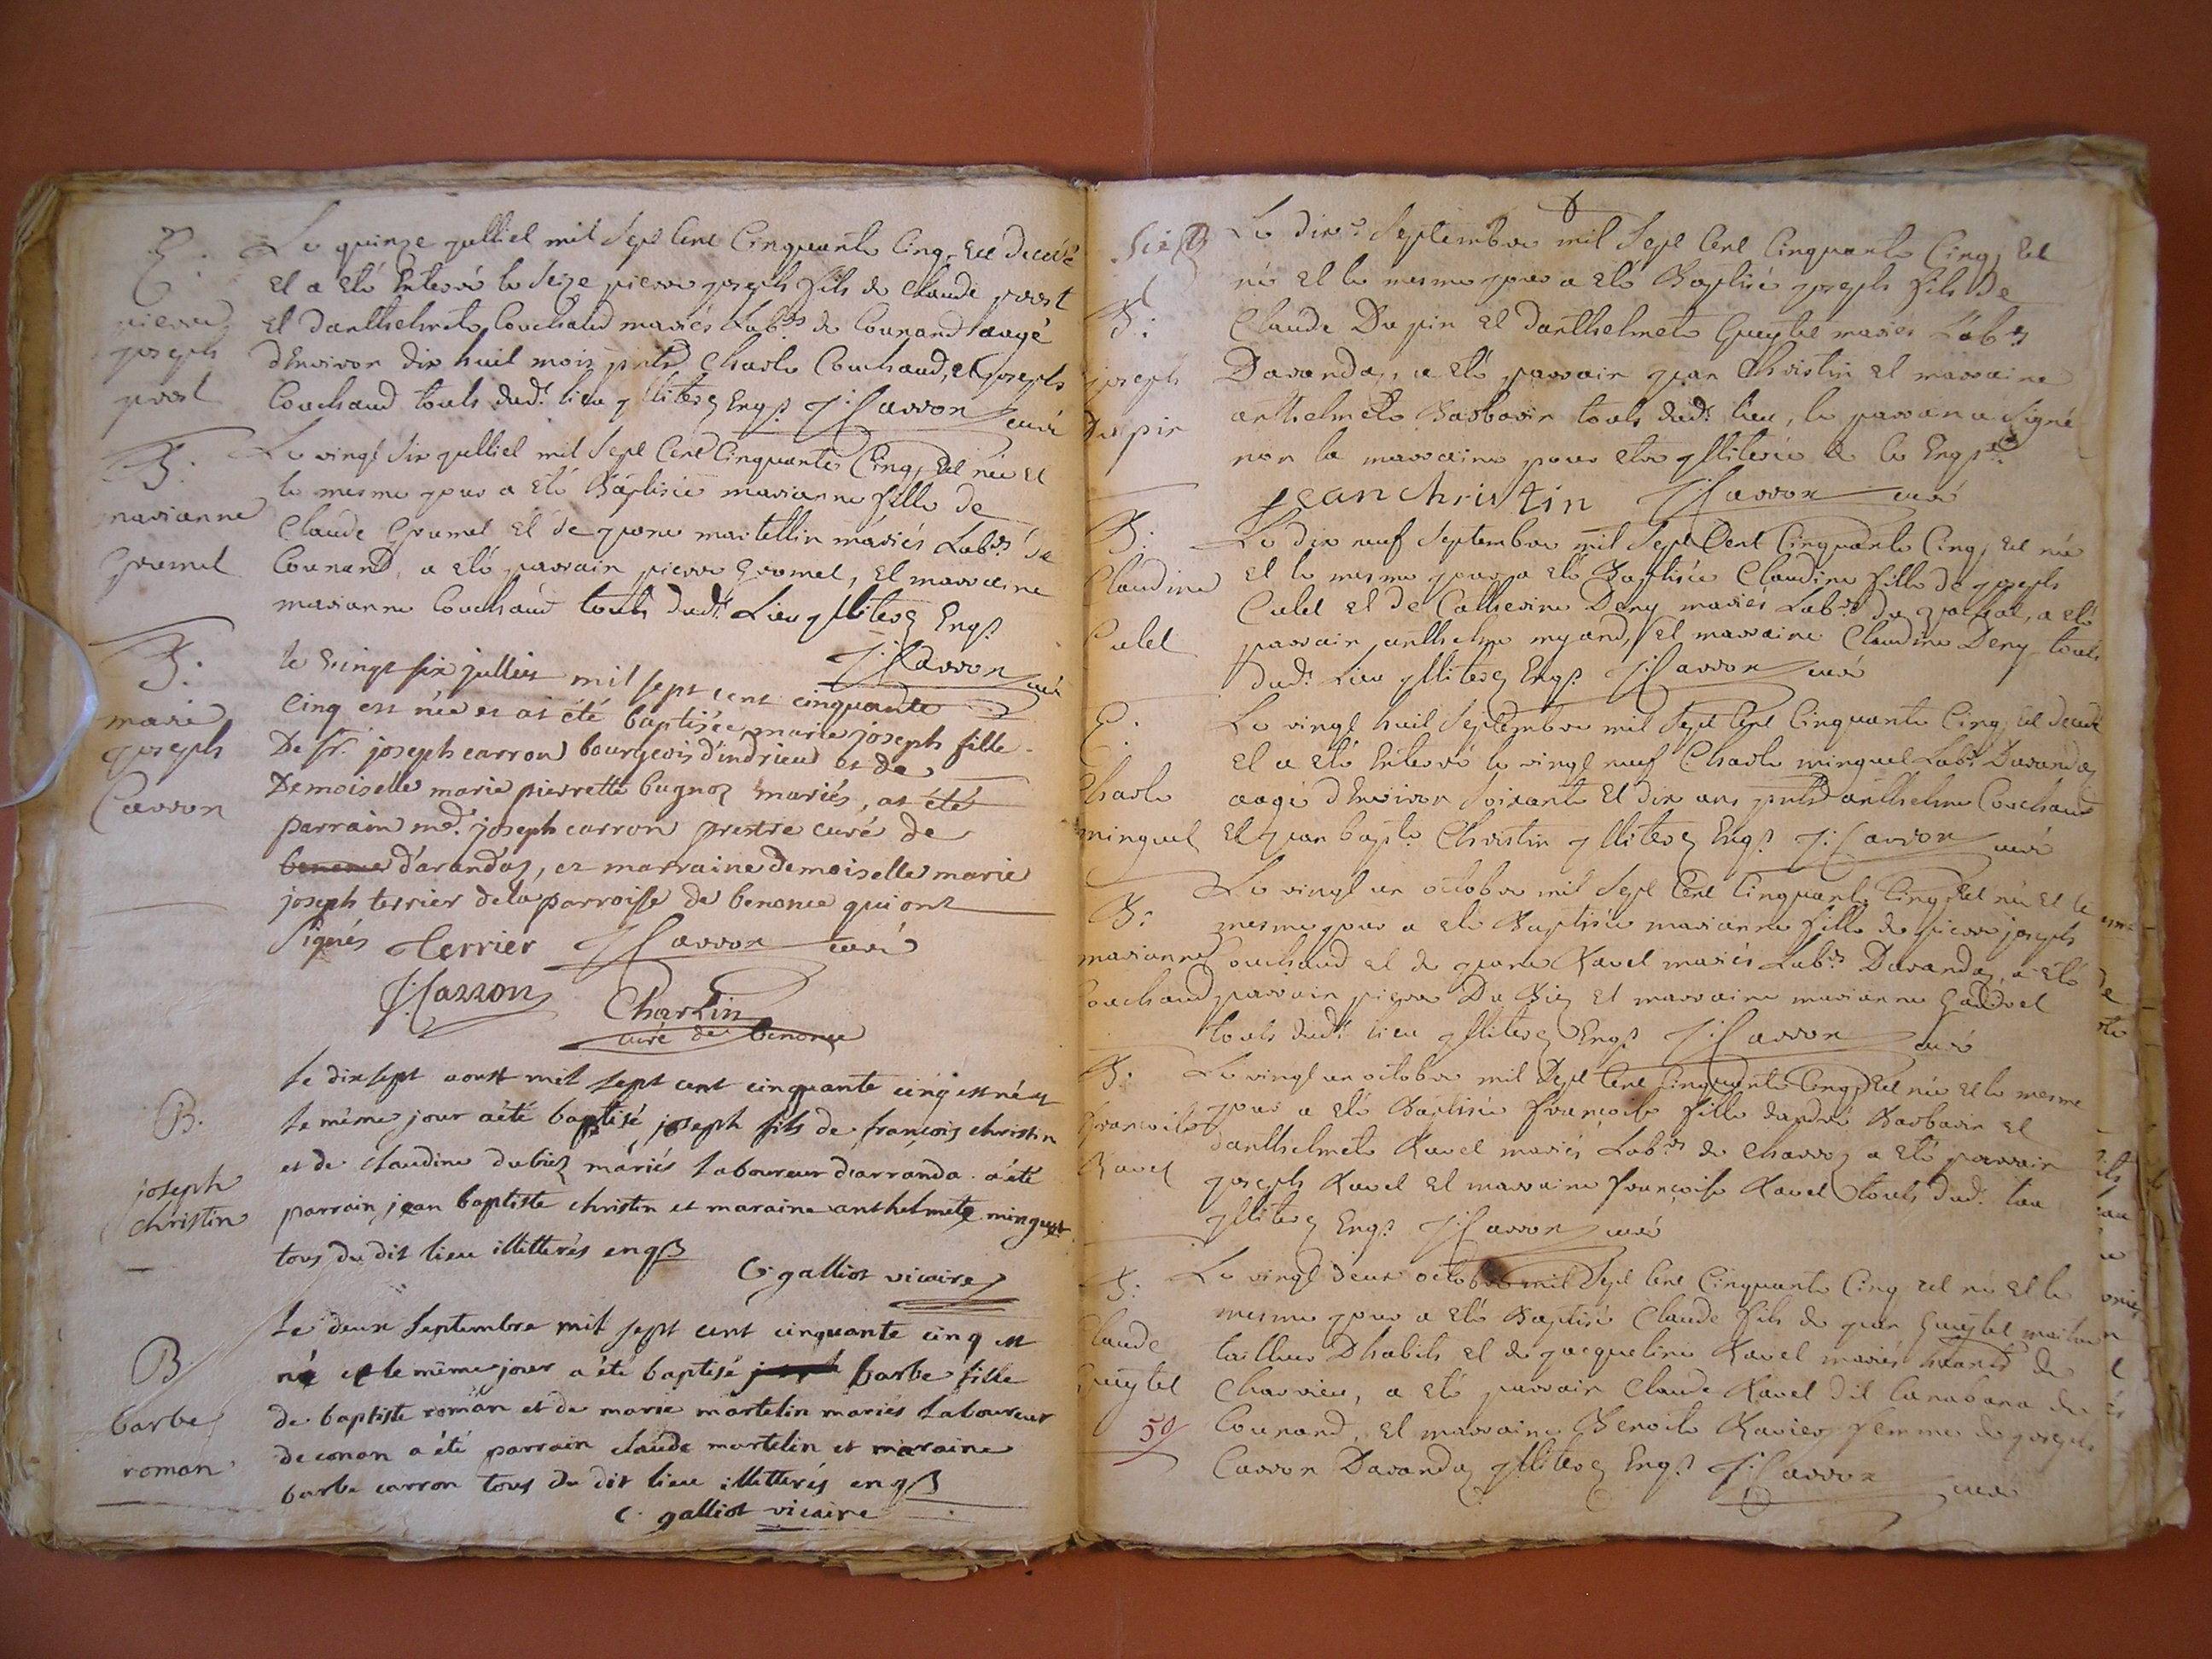 E.
pierre
joseph
prost
Le quinze julliet mil Sept Cent Cinquante Cinq, Est decédé
Et a Eté Enterré le Seize pierre joseph fils de Claude prost
Et danthelmete Couchaud mariés Labrs de Counand aagé
d'Environ dix huit mois pnts Charle Couchaud, et joseph
Couchaud touts dudt lieu jlliterez Enqs J: Carron curé
B.
marianne
Gromel
Le vingt Six julliet mil Sept Cent Cinquante Cinq, Est née Et
le mesme jour a Eté Baptisée marianne fille de
Claude Gromel Et de jeane martellin mariés Labrs de
Counand, a Eté parrain pierre Gromel, Et marraine
marianne Couchaud touts dudt Lieu jlliterez Enqs
J: Carron curé
B.
marie
joseph
Carron
le Vingt six julliet mil sept cent cinquante
Cinq est née et at été baptisée marie joseph fille
De sr. joseph carron bourgeois d'indrieu et de
Demoiselle marie pierrette bugnoz mariés, at étés
parrain md. joseph carron prestre curé de
benonce d'arandaz, et marraine demoiselle marie
joseph terrier de la parroisse de benonce qui ont
signés Terrier J: Carron curé
J: Carron Charlin
curé de benonce
B.
joseph
christin
Le dix sept aoust mil sept cent cinquante cinq est né et
le même jour a été baptisé joseph fils de françois christin
et de claudine dubiez mariés laboureur d'arranda. a été
parrain jean baptiste christin et maraine anthelmete minguet
tous du dit lieu illitterés enqs
C. galliot vicaire
B.
barbe
roman
Le deux Septembre mil sept cent cinquante cinq est
né et le même jour a été baptisé barbe fille
de baptiste roman et de marie martelin mariés Laboureur
de conan a été parrain claude martelin et maraine
barbe carron tous du dit lieu illitterés enqs
C. galliot vicaire
Six
B.
joseph
Dupin
Le dix Septembre mil Sept Cent Cinquante Cinq, Est
né Et le mesme jour a Eté Baptisé joseph fils De
Claude Dupin Et danthelmete Gueytel mariés Labrs
Darandaz, a Eté parrain jean Christin Et marraine
anthelmete Barbarin touts dudt lieu, le parrain a Signé
non la marraine pour etre jlliterée de ce Enqse
jean christin J: Carron curé
B.
Claudine
Culet
Le dix neuf Septembre mil Sept Cent Cinquante Cinq, Est née
Et le mesme jour a Eté Baptisée Claudine fille de joseph
Culet Et de Catherine Deny mariés Labrs du, a Eté
parrain anthelme myand, Et marraine Claudine Deny touts
dudt Lieu jlliterez Enqs J: Carron curé
E.
Charle
minguet
Le vingt huit Septembre mil Sept Cent Cinquante Cinq, Est decedé
Et a Eté Enterré le vingt neuf Charle minguet Labr Darandaz
aagé d'Environ Soixante Et dix ans pnts anthelme Couchaud
Et jean bapte Christin jlliterez Enqs J: Carron curé
B.
marianne
Couchaud
Le vingt un octobre mil Sept Cent Cinquante Cinq, Est née Et le
mesme jour a Eté Baptisée marianne fille de pierre joseph
Couchaud Et de jeane Ravet mariés Labrs Darandaz, a Eté
parrain pierre Du Biez Et marraine marianne
touts dudt lieu jlliterez Enqs J: Carron curé
B.
françoise
Ravet
Le vingt un octobre mil Sept Cent Cinquante Cinq, Est née Et le mesme
jour a Eté Baptisée françoise fille dandré Barbarin Et
danthelmete Ravet mariés Labrs de a Eté parrain
joseph Ravet Et marraine françoise Ravet touts dudt lieu
jlliterez Enqs J: Carron curé
B.
Claude
Gueytel
50
Le vingt deux octobre mil Sept Cent Cinquante Cinq Est né Et le
mesme jour a Eté Baptisé Claude fils de jean Gueytel maitre
tailleur Dhabits Et de jacqueline Ravet mariés de
Charvieu, a Eté parrain Claude Ravet dit de
Counand, Et marraine Benoite Ravier femme de joseph
Carron Darandaz jlliterez Enqs J: Carron curé